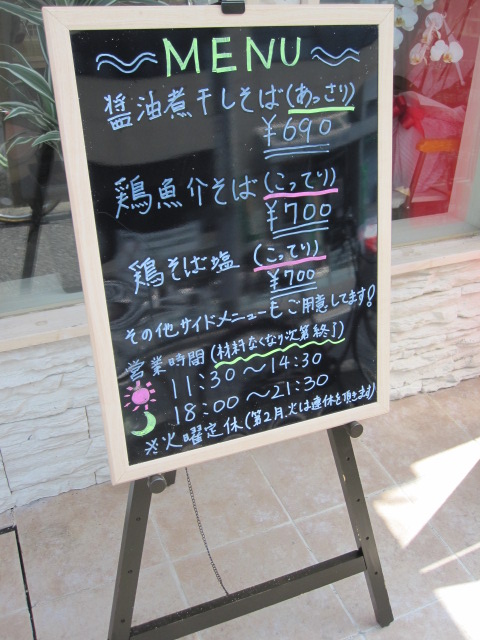 MENU
醤油煮干しそば(あっさり)
¥690
鶏魚介そば(こってり)
¥700
鶏そば塩(こってり)
¥700
その他サイドメニューもご用意してます!
営業時間(材料なくなり次第終了)
11:30～14:30
18:00～21:30
※火曜定休(第2月、火は連休を頂きます)